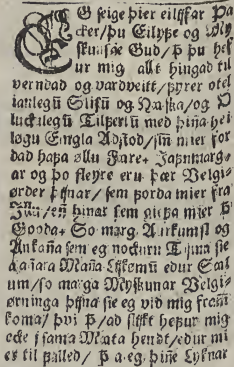 EG seige þier eilijfar Þa
cker/þu Eilyfe og Mys
kunsãe Gud/Þ þu hef
ur mig allt hingad til
verndad og vardveitt/fyrer otel
ianlegũ Slisũ og Naska/og
luckulegũ Tilferlũ med þijna hei
løgu Eingla Adstod/sem mier for
dad hafa øllu Fare. Jafnmarg
ar og þo fleyre eru þær Velgi
ørder þijnar/sem forda mier fra
Jllu/eñ hinar sem gista mier Þ
Gooda. So marg. Ankunst og
Ankaña sem eg nockurn Tijma sie
a añara Maña Lijkømũ edur Saal
um/so marga Myskunar Velgi
ørninga þijna sie eg vid mig fram
koma/þvi Þ/ad slijkt hefur mig
ecke j sama Mata hendt/edur mi
er til falled/Þ a eg þiñe Lijknar